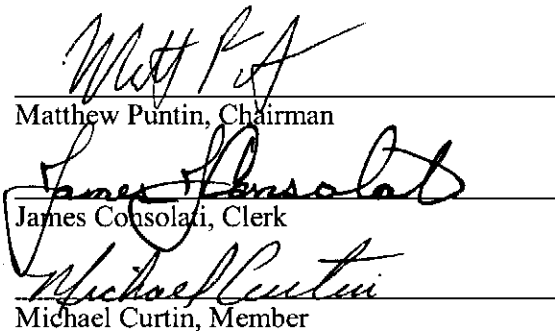 Matt P
Matthew Puntin, Chairman
James J Consolati
James Consolati, Clerk
Michael Curtin
Michael Curtin, Member